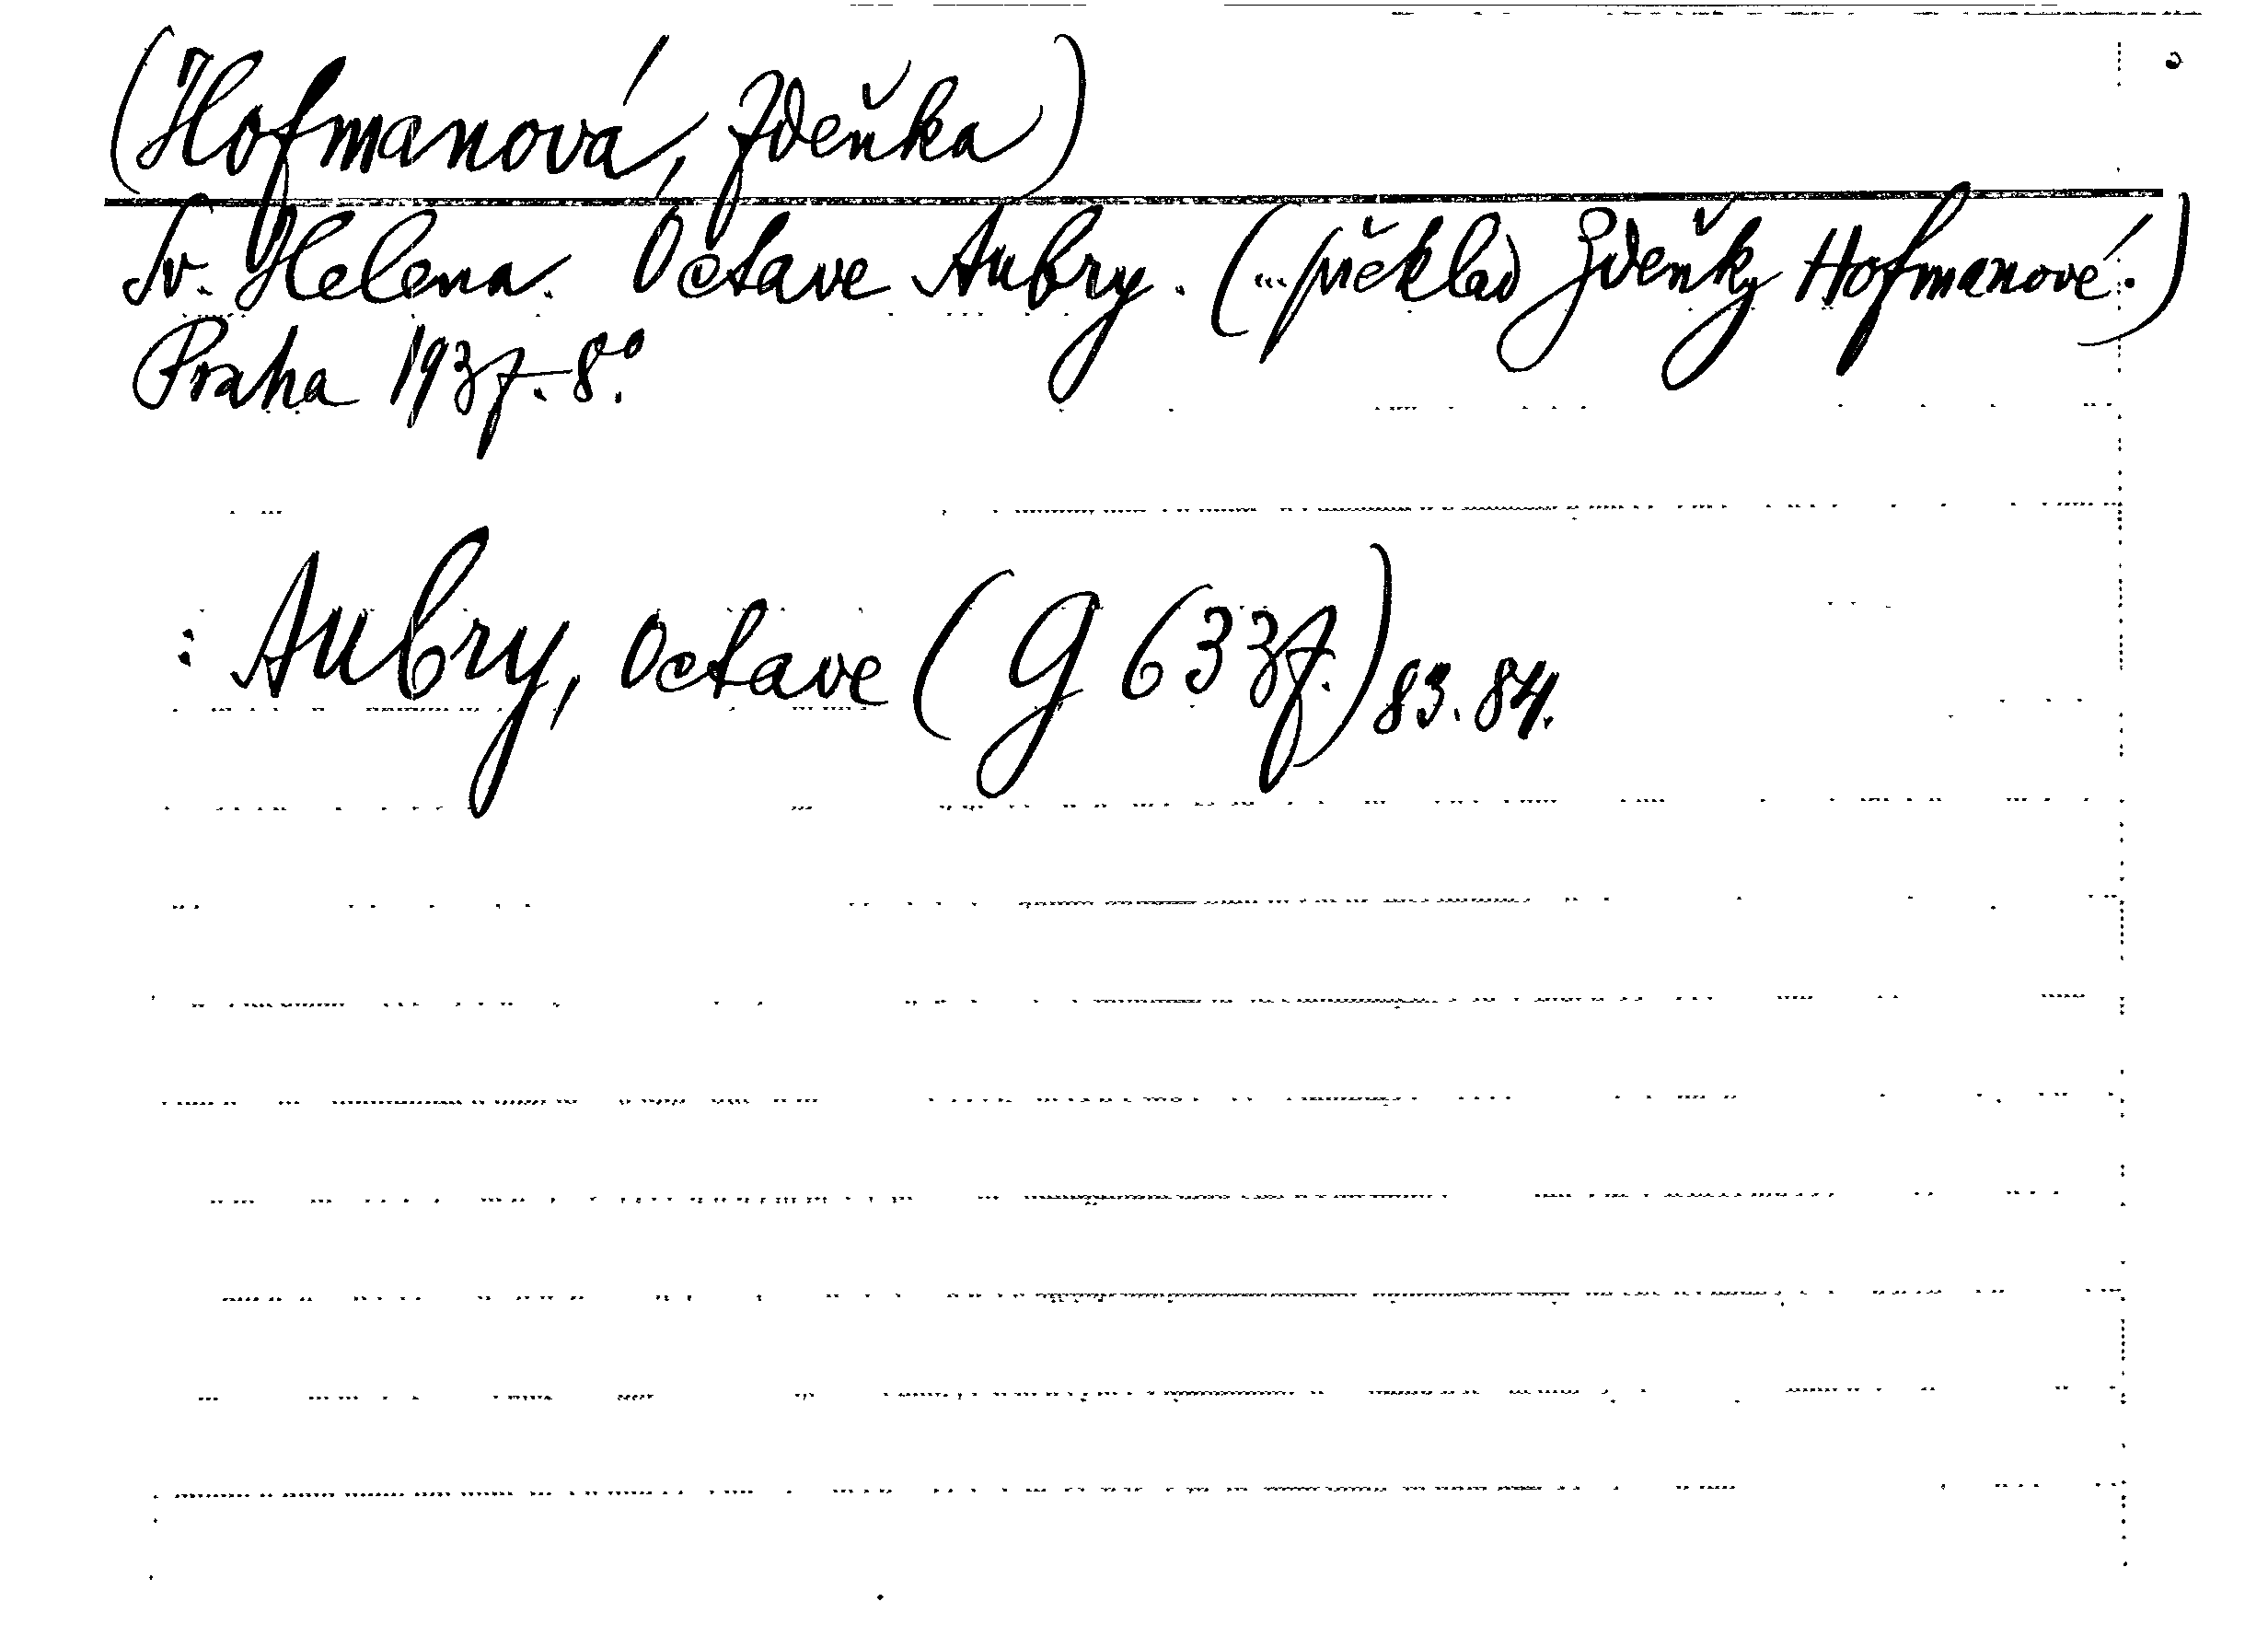 (Hofmanová, Zdeňka)
Sv. Helena. Octave Aubry. (...překlad Zdeňky Hofmanové.)
Praha 1937. 8.°
: Aubry, Octave (G 6337.) 83. 84.